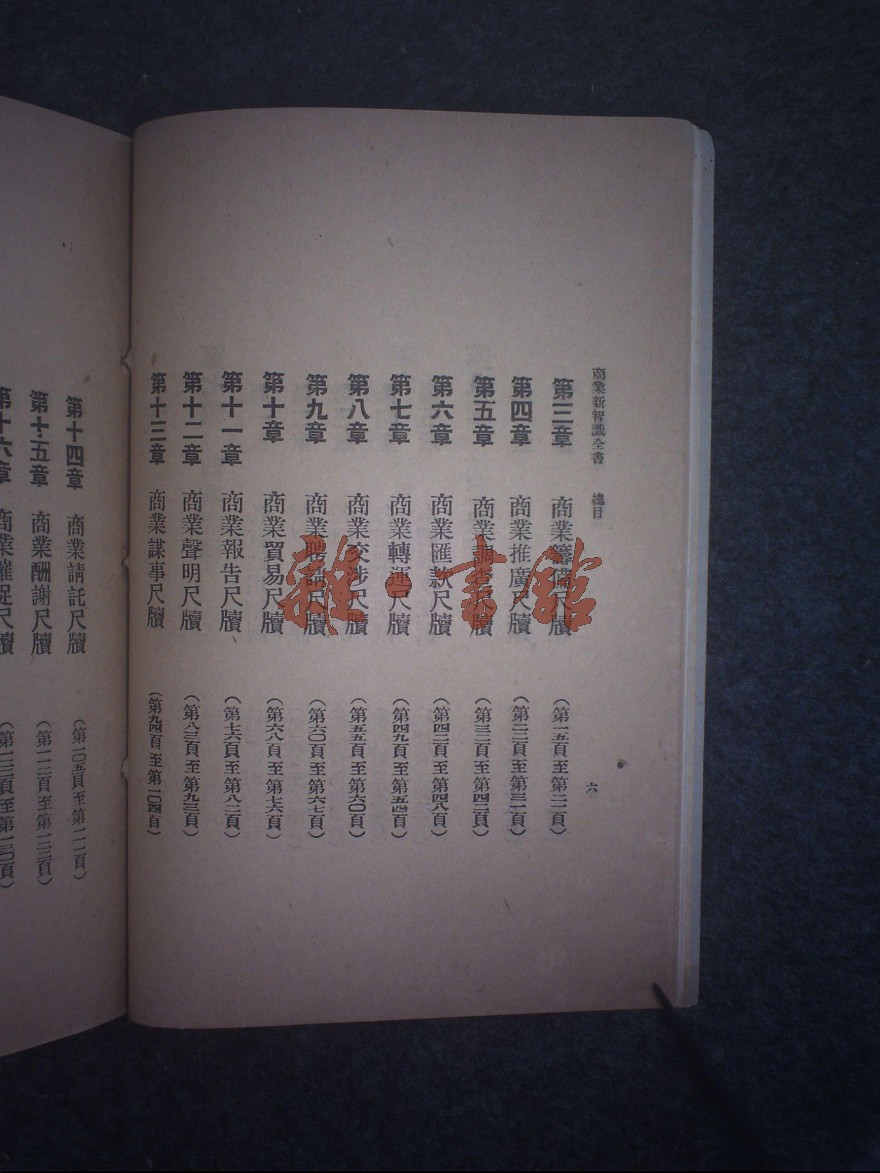 商業新智識全書 總目
六
第三章 商業籌備尺牘 (第一五頁至第二二頁)
第四章 商業推廣尺牘 (第二二頁至第三二頁)
第五章 商業調查尺牘 (第三二頁至第四二頁)
第六章 商業匯款尺牘 (第四二頁至第四八頁)
第七章 商業轉運尺牘 (第四九頁至第五四頁)
第八章 商業交涉尺牘 (第五五頁至第六〇頁)
第九章 商業聘請尺牘 (第六〇頁至第六七頁)
第十章 商業貿易尺牘 (第六八頁至第七六頁)
第十一章 商業報告尺牘 (第七六頁至第八二頁)
第十二章 商業聲明尺牘 (第八三頁至第九三頁)
第十三章 商業謀事尺牘 (第九四頁至第一〇四頁)
第十四章 商業請託尺牘 (第一〇五頁至第一一一頁)
第十五章 商業酬謝尺牘
第十六章 商業催促尺牘
雜·書館